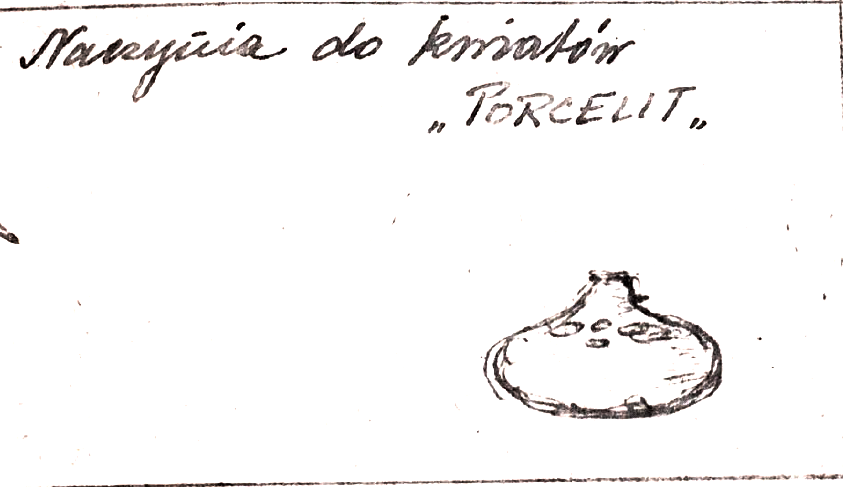 Naczynia do kwiatów
„PORCELIT„